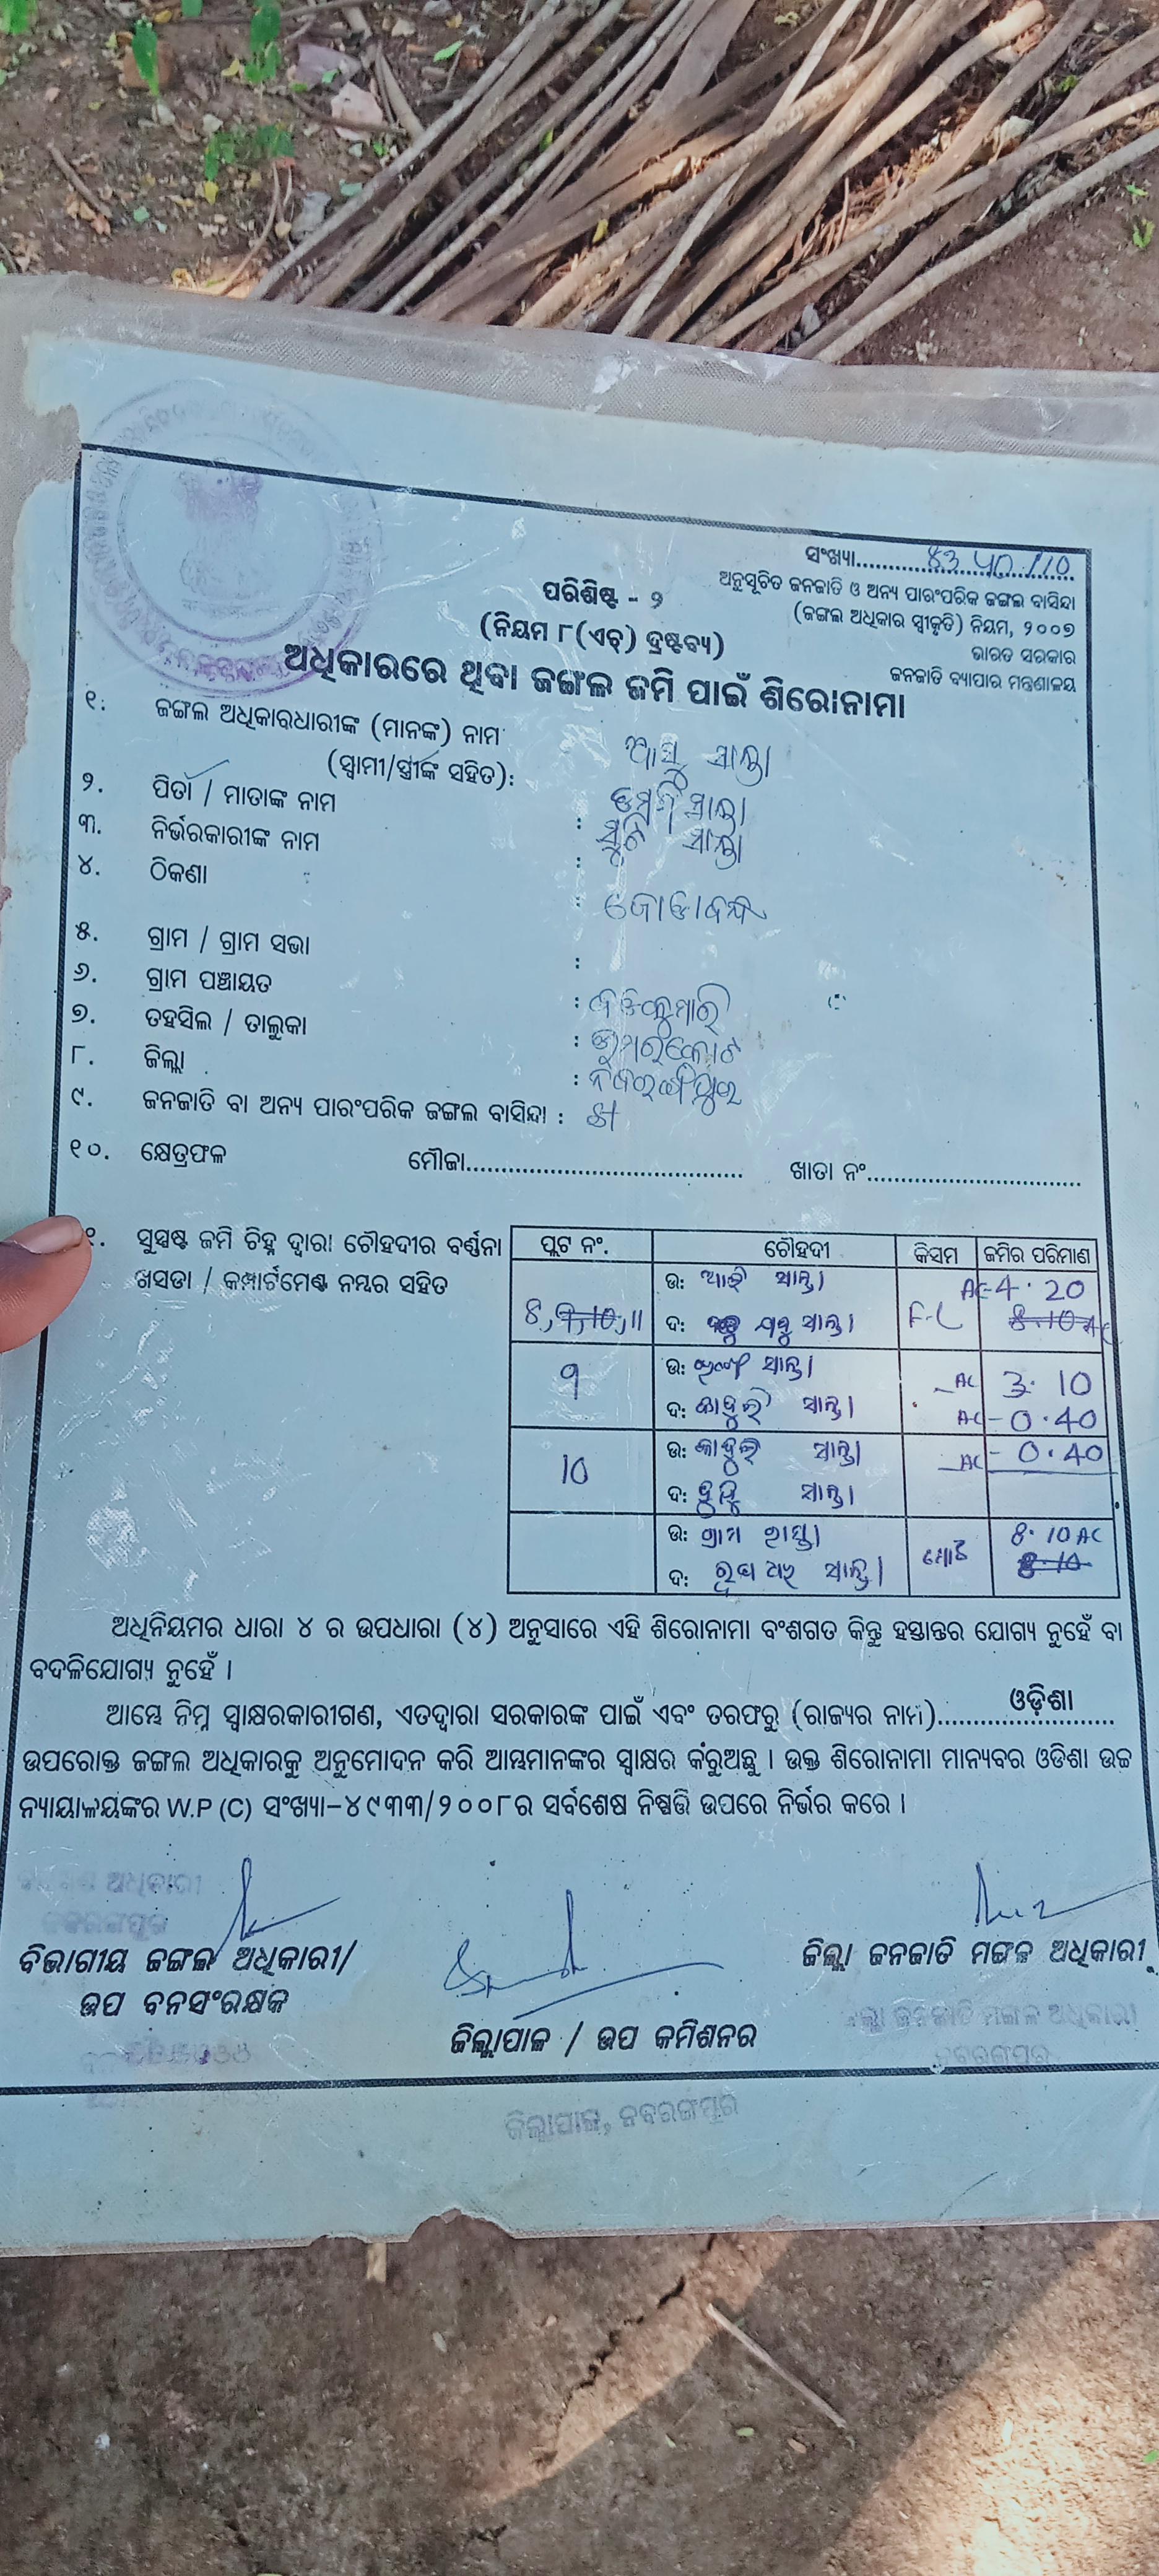 ସଂଖ୍ୟା
ପରିଶିଷ୍ଟ - ୨
ଅନୁସୂଚିତ ଜନଜାତି ଓ ଅନ୍ୟ ପାରଂପରିକ ଜଙ୍ଗଲ ବାସିନ୍ଦା
(ନିୟମ ୮(ଏଚ୍) ଦ୍ରଷ୍ଟବ୍ୟ)
(ଜଙ୍ଗଲ ଅଧିକାର ସ୍ୱୀକୃତି) ନିୟମ, ୨୦୦୭
ଭାରତ ସରକାର
ଜନଜାତି ବ୍ୟାପାର ମନ୍ତ୍ରଣାଳୟ
ଅଧିକାରରେ ଥିବା ଜଙ୍ଗଲ ଜମି ପାଇଁ ଶିରୋନାମା
୧. ଜଙ୍ଗଲ ଅଧିକାରଧାରୀଙ୍କ (ମାନଙ୍କ) ନାମ
(ସ୍ୱାମୀ/ସ୍ତ୍ରୀଙ୍କ ସହିତ):
୨. ପିତା / ମାତାଙ୍କ ନାମ :
୩. ନିର୍ଭରକାରୀଙ୍କ ନାମ :
୪. ଠିକଣା :
୫. ଗ୍ରାମ / ଗ୍ରାମ ସଭା :
୬. ଗ୍ରାମ ପଞ୍ଚାୟତ :
୭. ତହସିଲ / ତାଲୁକା : ଉମରକୋଟ
୮. ଜିଲ୍ଲା : ନବରଙ୍ଗପୁର
୯. ଜନଜାତି ବା ଅନ୍ୟ ପାରଂପରିକ ଜଙ୍ଗଲ ବାସିନ୍ଦା :
୧୦. କ୍ଷେତ୍ରଫଳ ମୌଜା ଖାତା ନଂ
ସୁସ୍ପଷ୍ଟ ଜମି ଚିହ୍ନ ଦ୍ୱାରା ଚୌହଦୀର ବର୍ଣ୍ଣନା
ଖସଡା / କମ୍ପାର୍ଟମେଣ୍ଟ ନମ୍ବର ସହିତ
ପ୍ଲଟ ନଂ. ଚୌହଦୀ କିସମ ଜମିର ପରିମାଣ
ଉ: ସାନ୍ତା AC-4.20
8, 9, 10, 11 ଦ: ସାନ୍ତା F-L 8.10 AC
9 ଉ: ସାନ୍ତା AC 3.10
ଦ: ସାନ୍ତା AC - 0.40
10 ଉ: ସାନ୍ତା AC - 0.40
ଦ: ସାନ୍ତା
ଉ: ଗ୍ରାମ ରାସ୍ତା ମୋଟ 8.10 AC
ଦ: ସାନ୍ତା 8.10
ଅଧିନିୟମର ଧାରା ୪ ର ଉପଧାରା (୪) ଅନୁସାରେ ଏହି ଶିରୋନାମା ବଂଶଗତ କିନ୍ତୁ ହସ୍ତାନ୍ତର ଯୋଗ୍ୟ ନୁହେଁ ବା
ବଦଳିଯୋଗ୍ୟ ନୁହେଁ ।
ଆମ୍ଭେ ନିମ୍ନ ସ୍ୱାକ୍ଷରକାରୀଗଣ, ଏତଦ୍ୱାରା ସରକାରଙ୍କ ପାଇଁ ଏବଂ ତରଫରୁ (ରାଜ୍ୟର ନାମ) ଓଡ଼ିଶା
ଉପରୋକ୍ତ ଜଙ୍ଗଲ ଅଧିକାରକୁ ଅନୁମୋଦନ କରି ଆମ୍ଭମାନଙ୍କର ସ୍ୱାକ୍ଷର କରୁଅଛୁ । ଉକ୍ତ ଶିରୋନାମା ମାନ୍ୟବର ଓଡିଶା ଉଚ୍ଚ
ନ୍ୟାୟାଳୟଙ୍କର W.P (C) ସଂଖ୍ୟା-୪୯୩୩/୨୦୦୮ର ସର୍ବଶେଷ ନିଷ୍ପତ୍ତି ଉପରେ ନିର୍ଭର କରେ ।
ବିଭାଗୀୟ ଜଙ୍ଗଲ ଅଧିକାରୀ/
ଉପ ବନସଂରକ୍ଷକ
ଜିଲ୍ଲାପାଳ / ଉପ କମିଶନର
ଜିଲ୍ଲା ଜନଜାତି ମଙ୍ଗଳ ଅଧିକାରୀ
ଜିଲ୍ଲା ଜନଜାତି ମଙ୍ଗଳ ଅଧିକାରୀ
ନବରଙ୍ଗପୁର
ଜିଲ୍ଲାପାଳ, ନବରଙ୍ଗପୁର